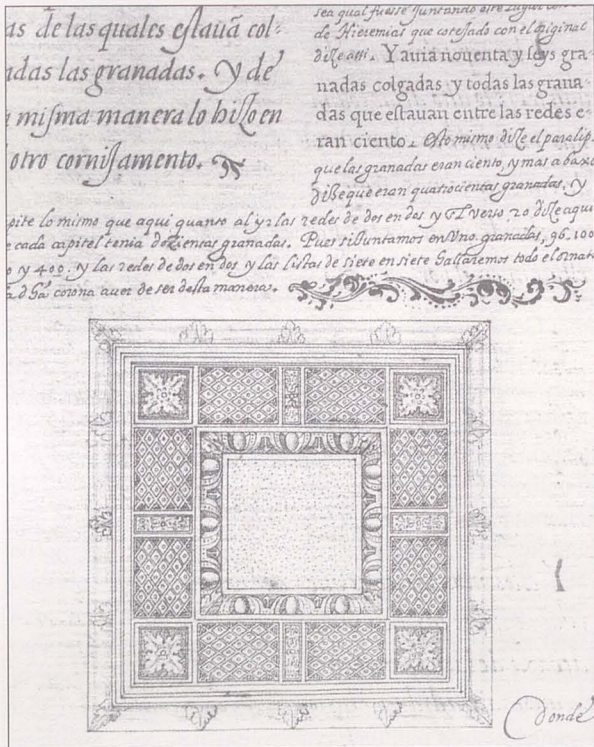 as de las quales estauã col-
adas las granadas. Y de
misma manera lo hiZo en
otro cornisamento.
sea qual fuesse Juntando este lugar con
de Hieremias que cotejado con el original
diZe assi. Y auia nouenta y seys gra
nadas colgadas y todas las grana
das que estauan entre las redes e-
ran ciento. Esto mismo diZe el paralip.
que las granadas eran ciento, y mas a baxo
diZe que eran quatrocientas granadas, y
pite lo mismo que aqui quanto al y las redes de dos en dos y El verso 20 diZe aqui
cada capitel tenia doZientas granadas. Pues si Juntamos en Vno granadas, 96. 100
y 400. y las redes de dos en dos y las listas de siete en siete hallaremos todo el ornato
corona auer de ser desta manera.
donde